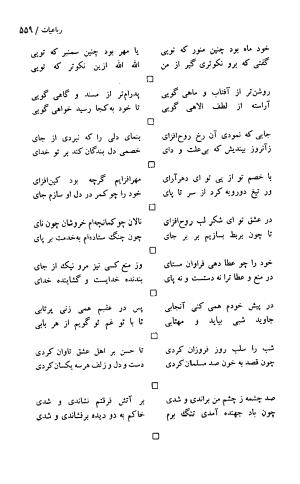 رباعیات / ۵۵۹
خود ماه بود چنین منور که تویی یا مهر بود چنین سمنبر که تویی
گفتی که برو نکوتری گیر از من الله الله ازین نکوتر که تویی
روشن‌تر از آفتاب و ماهی گویی پدرام‌تر از مسند و گاهی گویی
آراسته از لطف الاهی گویی تا خود به‌کجا رسید خواهی گویی
جایی که نمودی آن رخ روح‌افزای بنمای دلی را که نبردی از جای
زآنروز بیندیش که بی‌علت و رای خصمی دل بندگان کند بر تو خدای
با خصم تو از پی تو ای دهرآرای مهرافزایم گرچه بود کین‌افزای
ور تیغ دورویه کرد از سر تا پای خود را چو کمر در دل او سازم جای
در عشق تو ای شکر لب روح‌افزای نالان چو کمانچه‌ام خروشان چون نای
تا چون بربط بسازیم بر بر جای چون چنگ ستاده‌ام به‌خدمت بر پای
خود را چو عطا دهی فراوان مستای وز منع کسی نیز مرو نیک از جای
در منع و عطا ترا نه دستست و نه پای بندنده خدایست و گشاینده خدای
در پیش خودم همی کنی آنجابی پس در عقبم همی زنی پرتابی
جاوید شبی بباید و مهتابی تا با تو غم تو گویم از هر بابی
شب را سلب روز فروزان کردی تا حسن بر اهل عشق تاوان کردی
چون قصد به خون صد مسلمان کردی دست و دل و زلف هرسه یکسان کردی
صد چشمه ز چشم من براندی و شدی بر آتش فرقتم نشاندی و شدی
چون باد جهنده آمدی تنگ برم خاکم به دو دیده برفشاندی و شدی